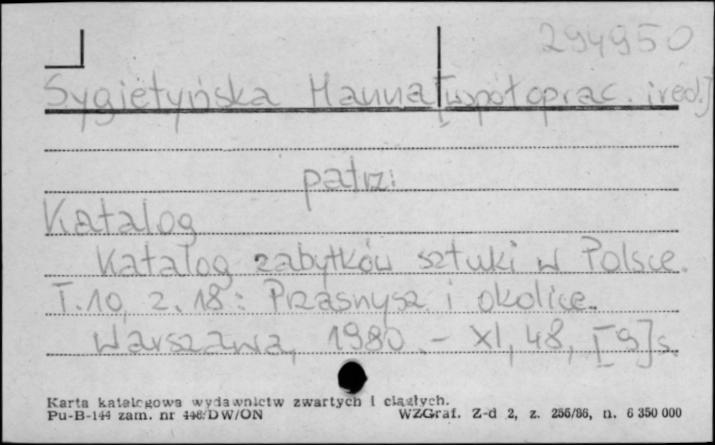 294950
Sygietyńska Hanna [współoprac. i red.]
patrz:
Katalog
Katalog zabytków sztuki w Polsce.
T. 10, z. 18: Przasnysz i okolice.
Warszawa, 1980. - XI, 48, [9] s.
Karta katalogowa wydawnictw zwartych i ciągłych.
Pu-B-144 zam. nr 446/DW/ON WZGraf. Z-d 2, z. 256/86, n. 6 350 000